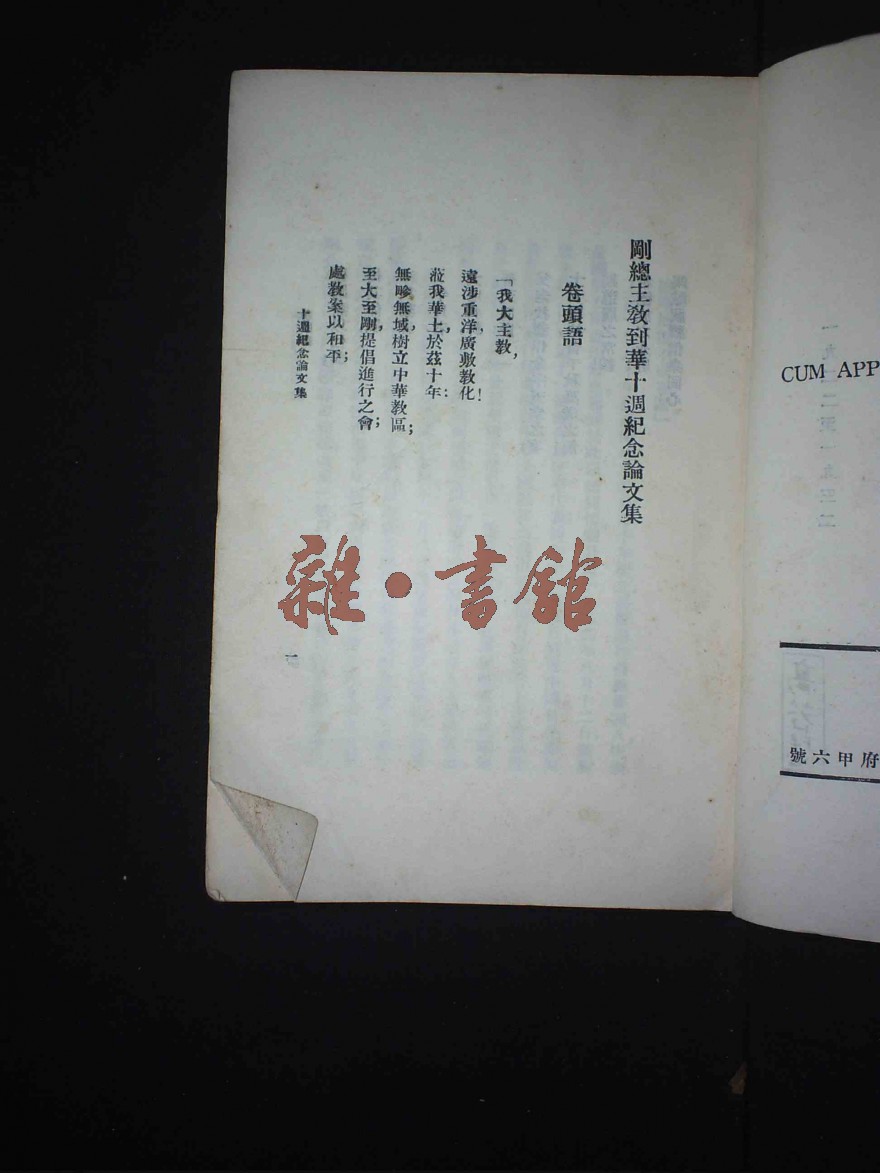 剛總主教到華十週紀念論文集
卷頭語
「我大主教，
遠涉重洋，廣敷教化！
蒞我華土，於茲十年：
無畛無域，樹立中華教區；
至大至剛，提倡進行之會；
處教案以和平；
十週紀念論文集
一
雜·書館
CUM APP
府甲六號